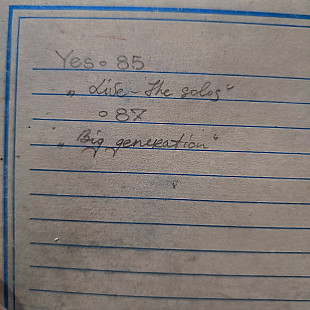 Yes • 85
„ Live - The solos“
• 87
„Big generation“